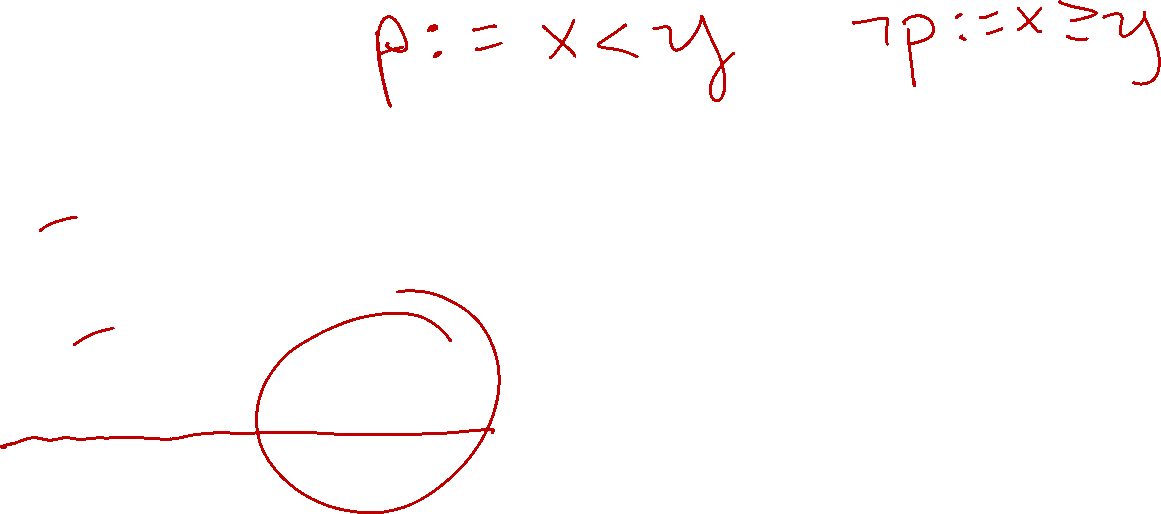 p := x < y    ¬p := x ≥ y